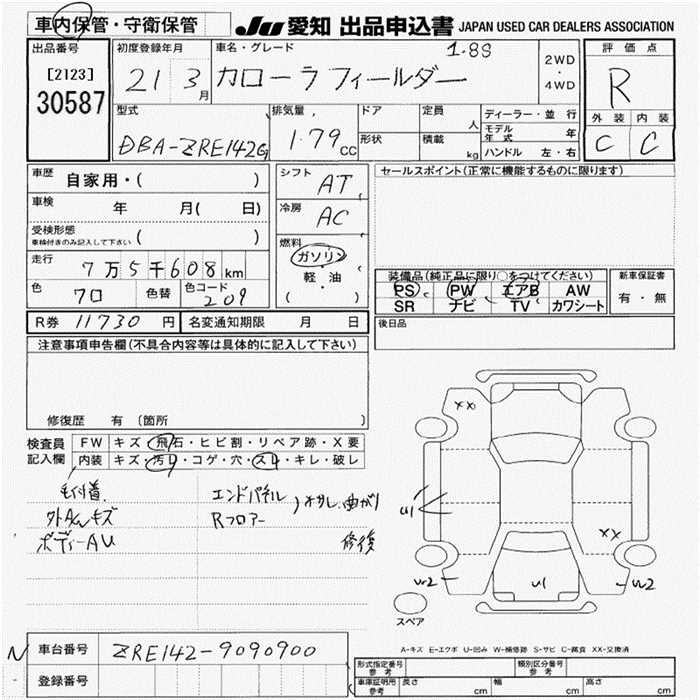 車内保管・守衛保管 JU 愛知 出品申込書 JAPAN USED CAR DEALERS ASSOCIATION
出品番号 初度登録年月 車名・グレード 1.8S 2WD・4WD 評価点
[2123] 30587 21 3月 カローラフィールダー R
型式 排気量 ドア 定員 人 ディーラー・並行 外装 内装
DBA-ZRE142G 1.79 CC 形状 積載 kg モデル年式 年 C C
ハンドル 左・右
車歴 自家用・( ) シフト AT セールスポイント(正常に機能するものに限ります)
車検 年 月( 日) 冷房 AC
受検形態 車検付きのみ記入して下さい ( )
燃料 ガソリン 軽・油 ( )
走行 7万5千608km
装備品(純正品に限り○をつけてください) 新車保証書
色 クロ 色替 色コード 209
PS PW エアB AW 有・無
SR ナビ TV カワシート
R券 11730円 名変通知期限 月 日 後日品
注意事項申告欄(不具合内容等は具体的に記入して下さい)
修復歴 有 (箇所 )
検査員記入欄 FW キズ・飛石・ヒビ割・リペア跡・X要
内装 キズ・汚れ・コゲ・穴・スレ・キレ・破レ
エンドパネル
Rフロアー 曲がり
ボディーAU 修復
XX
U1
XX
U1
スペア
A-キズ E-エクボ U-凹み W-補修跡 S-サビ C-腐食 XX-交換済
車台番号 ZRE142-9090900
登録番号
形式指定番号 参考 類別区分番号 参考
車庫証明用 参考 長さ cm 幅 cm 高さ cm